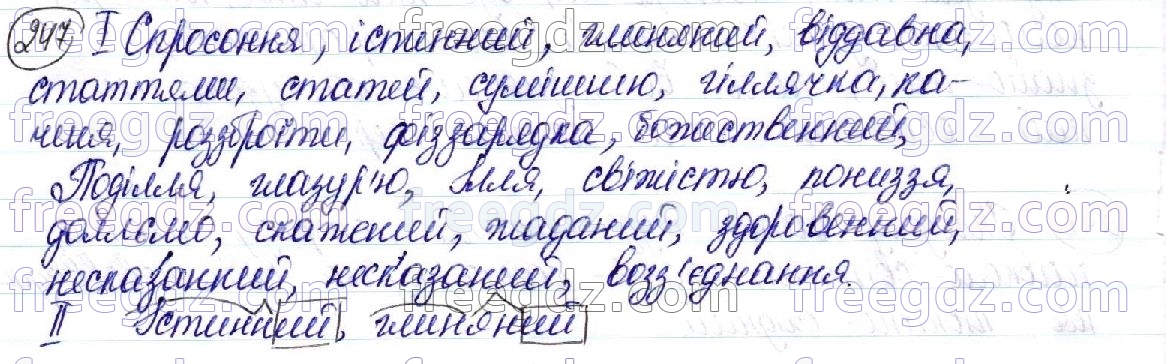 247 I Спросоння, істинний, глиняний, віддавна,
статтями, статей, сумішшю, гіллячка, ка-
чиня, роззброїти, фіззарядка, божественний,
Поділля, глазур'ю, Ілля, свіжістю, пониззя,
доллємо, скажений, жаданий, здоровенний,
несказанний, несказаний, возз'єднання.
II Істинний, глиняний